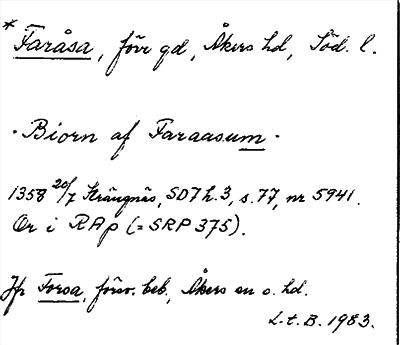 * Faråsa, förr gd, Åkers hd, Söd. l.
· Biorn af Faraasum ·
1358 20/7 Strängnäs, SD7 h.3, s.77, nr 5941.
Or i RAp (= SRP 375).
Jfr Forsa, försv. beb., Åkers sn o. hd.
L.t.B. 1983.